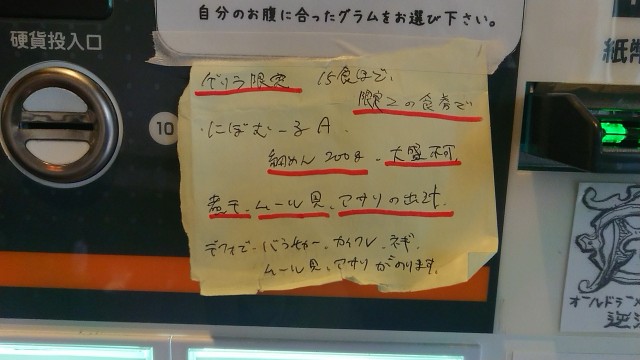 自分のお腹に合ったグラムをお選び下さい。
硬貨投入口
紙幣
ゲリラ限定 15食ほど、
限定2の食券で
・にぼむー子A
細めん200g 大盛不可
煮干、ムール貝、アサリの出汁
デフォで、バラチャー、カイワレ、ネギ、
ムール貝、アサリがのります。
10
オールドラーメ
逆